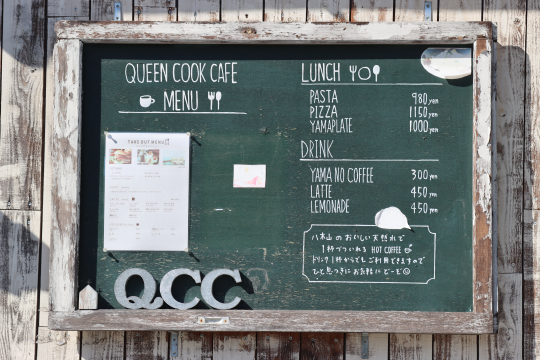 QUEEN COOK CAFE
MENU
TAKE OUT MENU
QCC
LUNCH
PASTA 980 yen
PIZZA 1150 yen
YAMAPLATE 1000 yen
DRINK
YAMA NO COFFEE 300 yen
LATTE 450 yen
LEMONADE 450 yen
八本山のおいしい天然水で
1杯づついれる HOT COFFEE
ドリンク1杯からでもご利用できますので
ひと息つきにお気軽にどーぞ